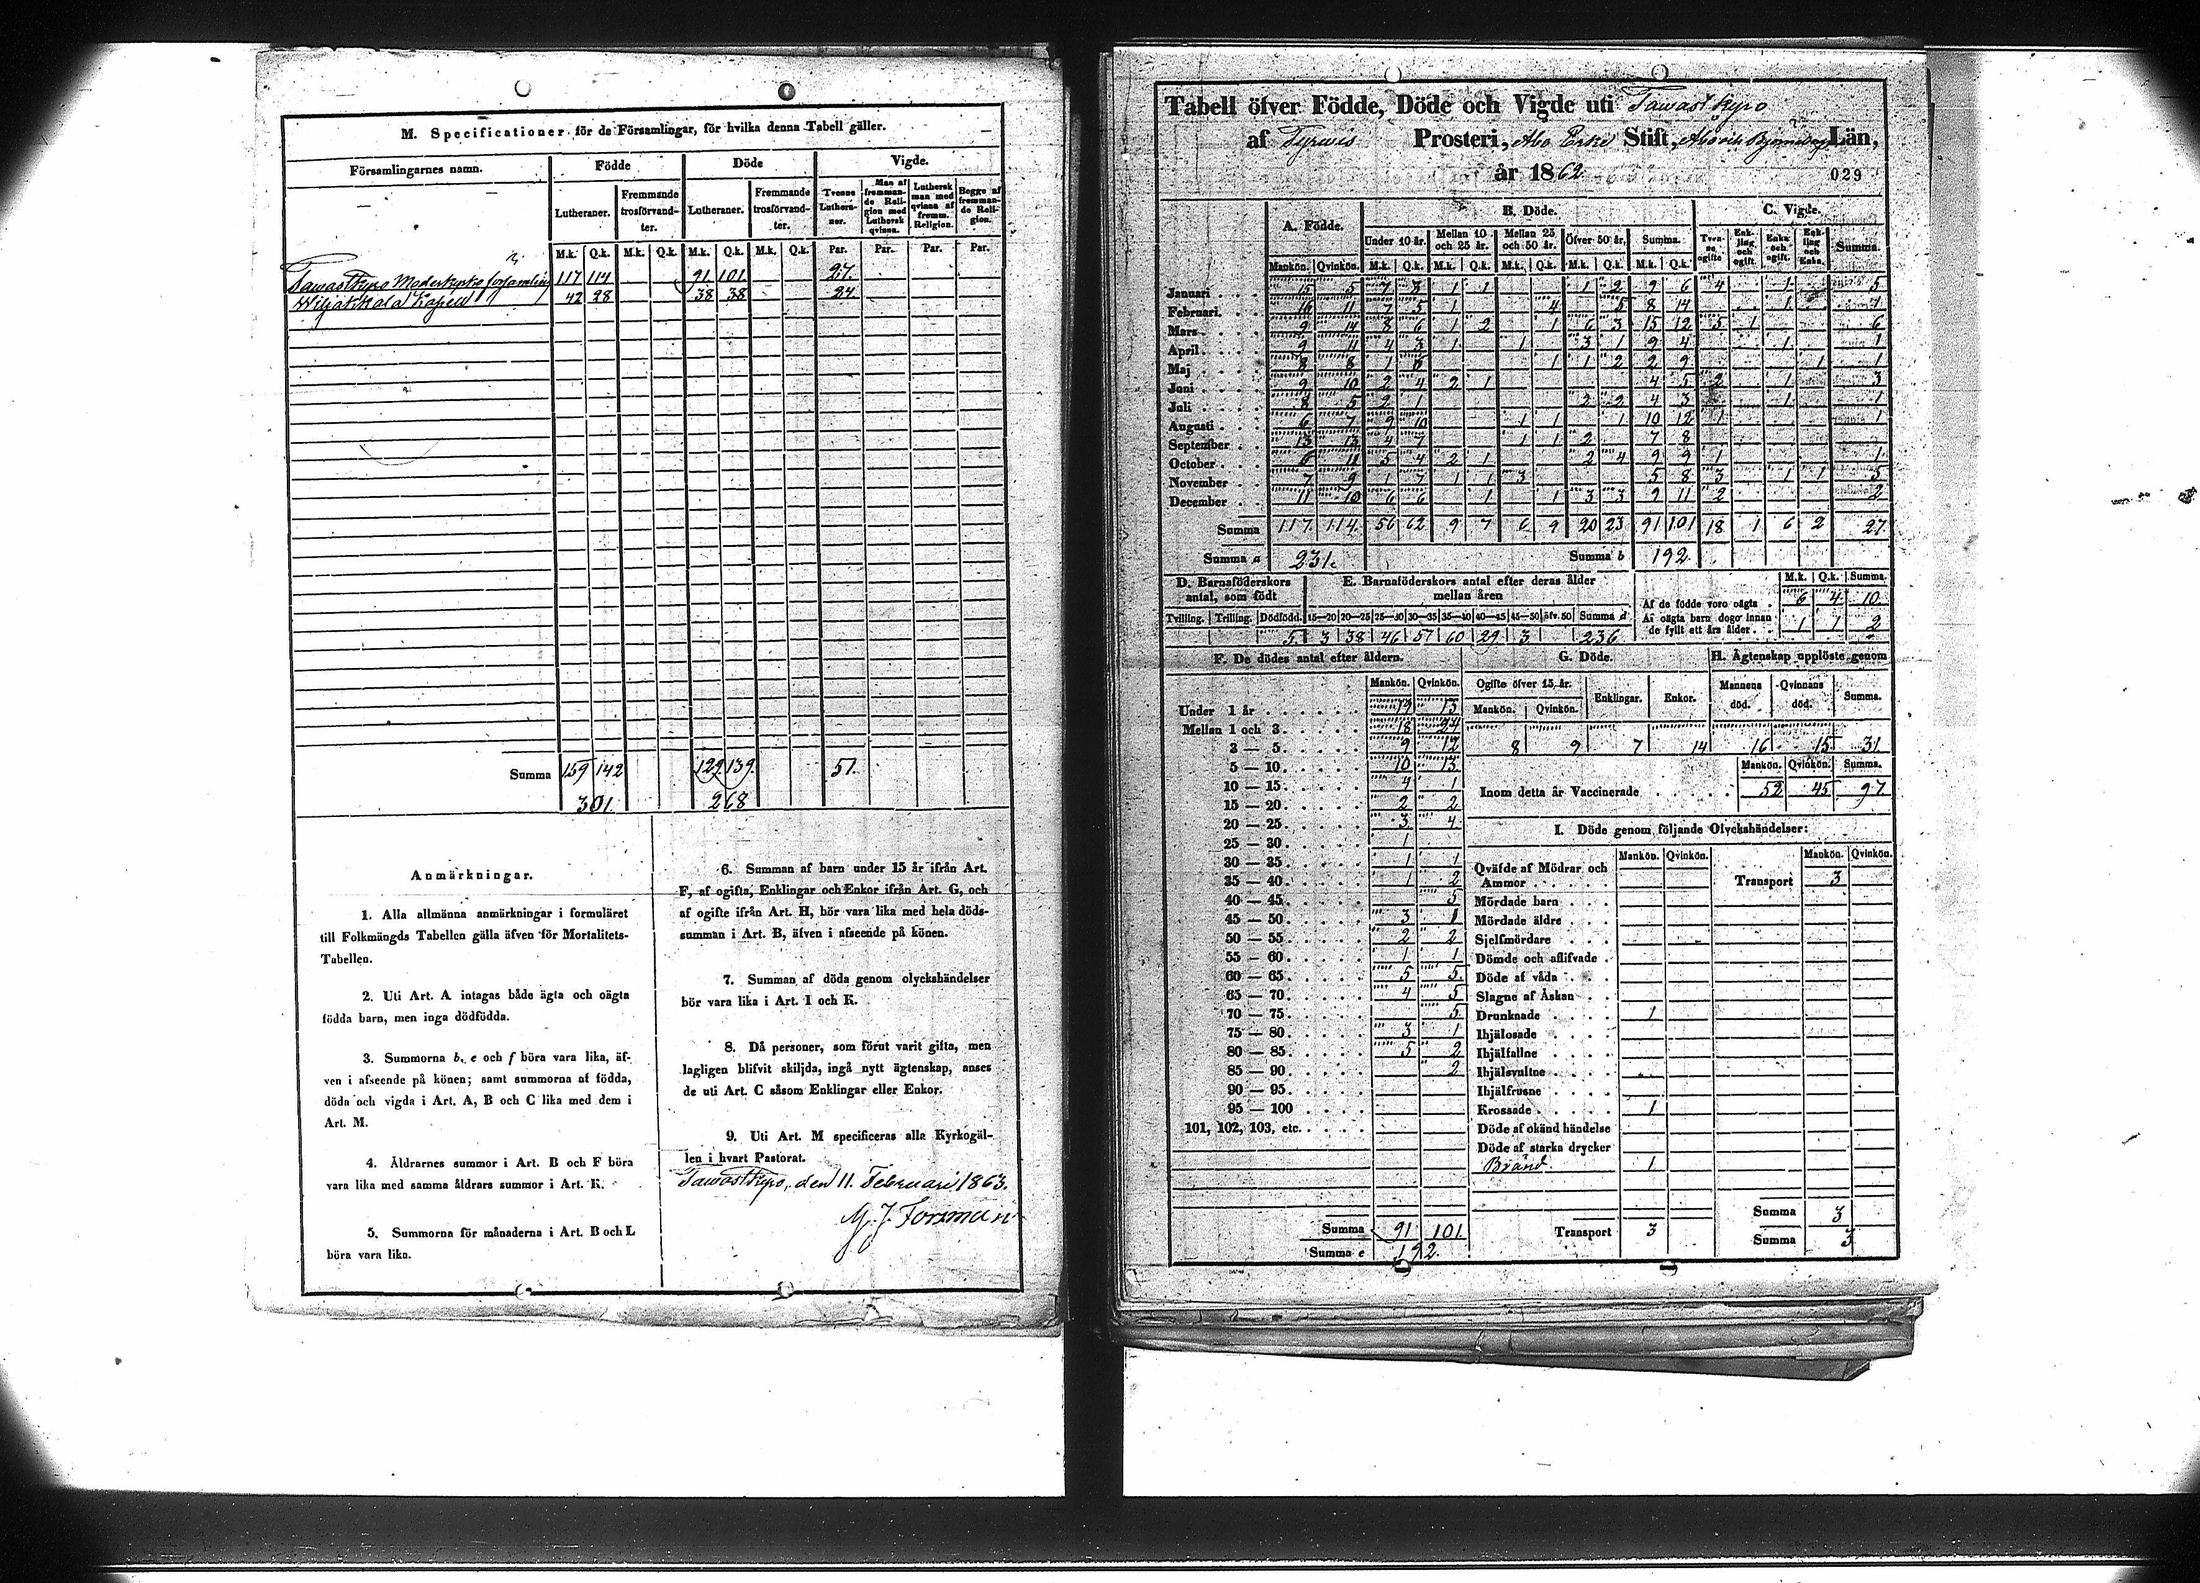 M. Specificationer för de Församlingar, för hvilka denna Tabell gäller.
Församlingarnes namn. Födde Döde Vigde.
Lutheraner. Fremmande trosförvandter. Lutheraner. Fremmande trosförvandter. Tvenne Lutheraner. Man af fremmande Religion med Luthersk qvinna. Luthersk man med qvinna af fremm. Religion. Begge af fremmande Religion.
M.k. Q.k. M.k. Q.k. M.k. Q.k. M.k. Q.k. Par. Par. Par. Par.
Tawastkyro Moderkyrko församling 117 114 91 101 27.
Wiljakkala Kapell 42 28 38 38 24
Summa 159 142 129 139 51.
301. 268
Anmärkningar.
1. Alla allmänna anmärkningar i formuläret
till Folkmängds Tabellen gälla äfven för Mortalitets-
Tabellen.
2. Uti Art. A intagas både ägta och oägta
födda barn, men inga dödfödda.
3. Summorna b, e och f böra vara lika, äf-
ven i afseende på könen; samt summorna af födda,
döda och vigda i Art. A, B och C lika med dem i
Art. M.
4. Åldrarnes summor i Art. B och F böra
vara lika med samma åldrars summor i Art. K.
5. Summorna för månaderna i Art. B och L
böra vara lika.
6. Summan af barn under 15 år ifrån Art.
F, af ogifta, Enklingar och Enkor ifrån Art. G, och
af ogifte ifrån Art. H, bör vara lika med hela döds-
summan i Art. B, äfven i afseende på könen.
7. Summan af döda genom olyckshändelser
bör vara lika i Art. I och K.
8. Då personer, som förut varit gifta, men
lagligen blifvit skiljda, ingå nytt ägtenskap, anses
de uti Art. C såsom Enklingar eller Enkor.
9. Uti Art. M specificeras alla Kyrkogäl-
len i hvart Pastorat.
Tawastkyro, den 11. Februari 1863.
M. J. Forsman
Tabell öfver Födde, Döde och Vigde uti Tawastkyro
af Tyrwis Prosteri, Abo Erke Stift, Län,
år 1862 029
A. Födde. B. Döde. C. Vigde.
Under 10 år. Mellan 10 och 25 år. Mellan 25 och 50 år. Öfver 50 år. Summa. Tvenne ogifte. Enkling och ogift. Enka och ogift. Enkling och Enka. Summa.
Mankön. Qvinkön. M.k. Q.k. M.k. Q.k. M.k. Q.k. M.k. Q.k. M.k. Q.k.
Januari 15 5 7 3 1 1 1 2 9 6 4 1 5
Februari. 16 11 7 5 1 4 5 8 14 1
Mars 9 14 8 6 1 2 1 6 3 15 12 5 1 6
April. 9 11 4 3 1 1 3 1 9 4 1 1
Maj 8 8 1 1 1 2 2 9 1 1
Juni 9 10 2 4 2 1 4 5 2 1 3
Juli 8 5 2 1 2 2 4 3 1 1
Augusti 6 7 9 10 1 1 1 10 12 1 1
September 13 13 4 7 1 1 2 7 8
October 11 5 4 2 1 2 4 9 9 1 1
November 7 9 1 7 1 1 3 5 8 3 1 1 5
December 11 10 6 6 1 1 3 3 9 11 2 2
Summa 117. 114. 56 62 9 7 6 9 20 23 91 101 18 1 6 2 27.
Summa a 231. Summa b 192
D. Barnaföderskors antal, som födt
E. Barnaföderskors antal efter deras ålder mellan åren
M.k. Q.k. Summa.
Tvilling. Trilling. Dödfödd. 15—20 20—25 25—30 30—35 35—40 40—45 45—50 öfv. 50 Summa d
5 3 38 46 57 60 29 3 236
Af de födde voro oägta 6 4 10
Af oägta barn dogo innan de fyllt ett års ålder 1 1 2
F. De dödes antal efter åldern. G. Döde. H. Ägtenskap upplöste genom
Mankön. Qvinkön. Ogifte öfver 15 år. Enklingar. Enkor. Mannens död. Qvinnans död. Summa.
Mankön. Qvinkön.
8 9 7 14 16 15 31
Under 1 år 19 13
Mellan 1 och 3 18 24
3 — 5 9 12
5 — 10 10 13
10 — 15 4 1
15 — 20 2 2
20 — 25 3 4
25 — 30 1
30 — 35 1 1
35 — 40 1 2
40 — 45 5
45 — 50 3 1
50 — 55 2 2
55 — 60 1 1
60 — 65 5 5
65 — 70 4 5
70 — 75 5
75 — 80 3 1
80 — 85 5 2
85 — 90 2
90 — 95
95 — 100
101, 102, 103, etc.
Summa 91 101.
Summa e 192.
Mankön. Qvinkön. Summa.
Inom detta år Vaccinerade 52 45 97.
I. Döde genom följande Olyckshändelser:
Mankön. Qvinkön. Mankön. Qvinkön.
Qväfde af Mödrar och Ammor Transport 3
Mördade barn
Mördade äldre
Sjelfmördare
Dömde och aflifvade
Döde af våda
Slagne af Åskan
Drunknade 1
Ihjälosade
Ihjälfallne
Ihjälsvultne
Ihjälfrusne
Krossade 1
Döde af okänd händelse
Döde af starka drycker
Bränd 1
Summa 3
Transport 3 Summa 3